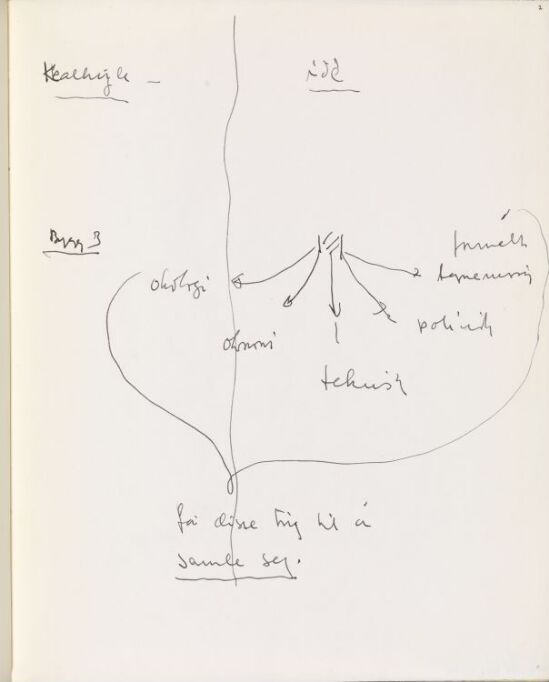 2
idé
Bygg 3
økologi
formelt
økonomi
politisk
teknisk
få disse ting til å
samle seg.